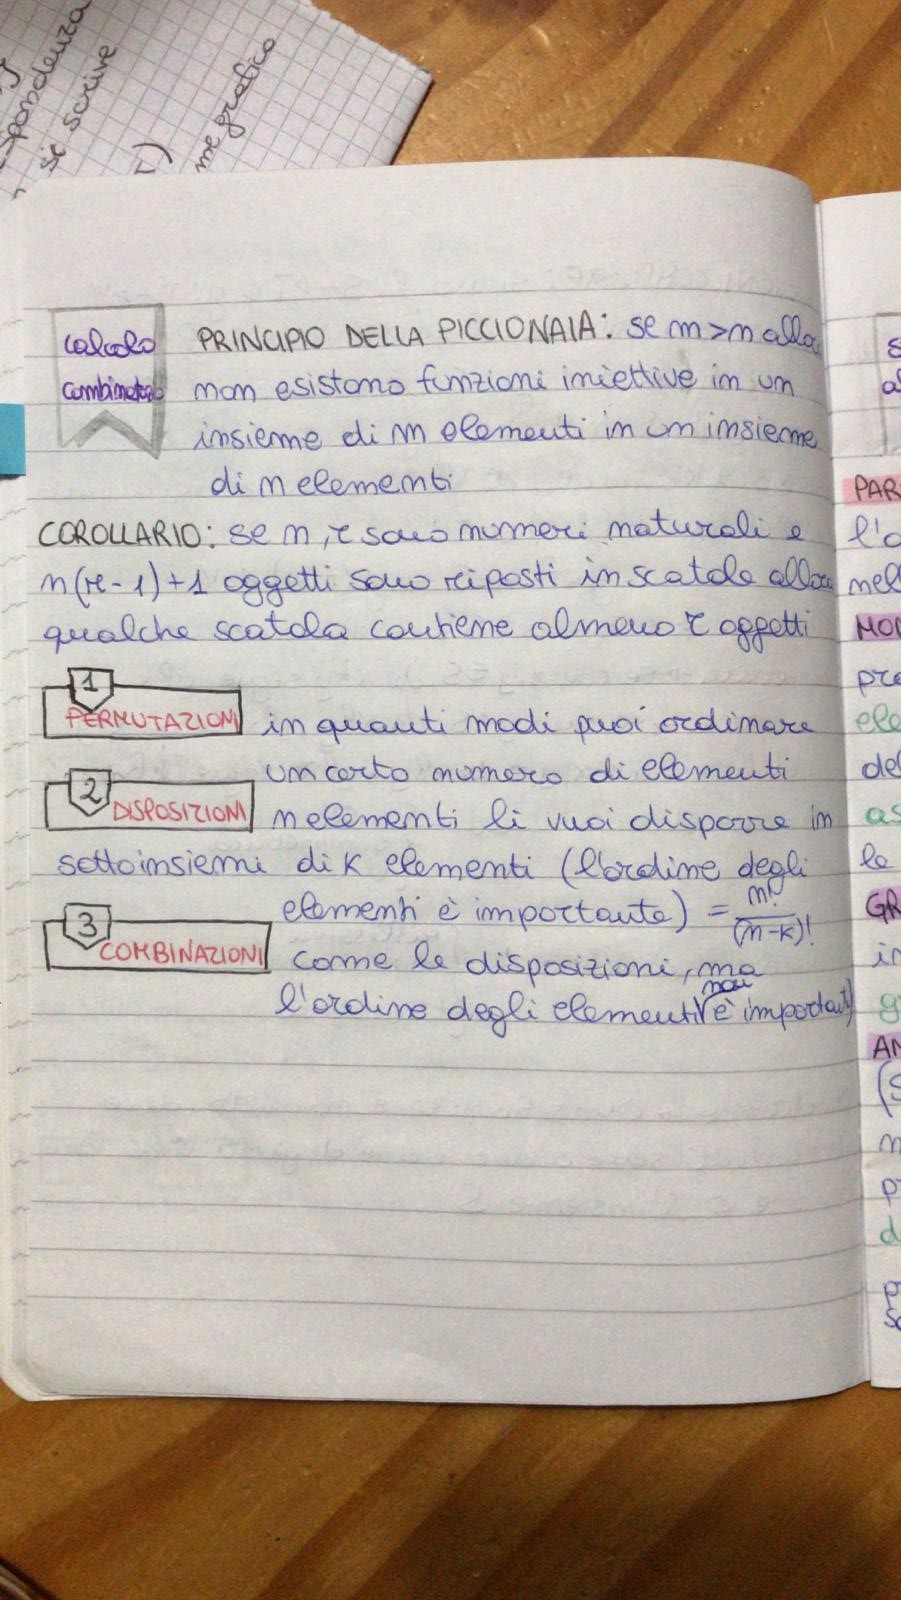 spondenza
si scrive
me grafico
calcolo
combinatorio
PRINCIPIO DELLA PICCIONAIA: se m>n allora
non esistono funzioni iniettive in un
insieme di m elementi in un insieme
di n elementi
COROLLARIO: se n, r sono numeri naturali e
n(r-1)+1 oggetti sono riposti in scatole allora
qualche scatola contiene almeno r oggetti
1
PERMUTAZIONI in quanti modi puoi ordinare
un certo numero di elementi
2
DISPOSIZIONI n elementi li vuoi disporre in
sottoinsiemi di k elementi (l'ordine degli
elementi è importante) = n!/(n-k)!
3
COMBINAZIONI come le disposizioni, ma
l'ordine degli elementi non è important
PAR
l'
nel
MO
pre
ele
del
as
le
GR
in
g
AN
(S
n
p
d
p
s